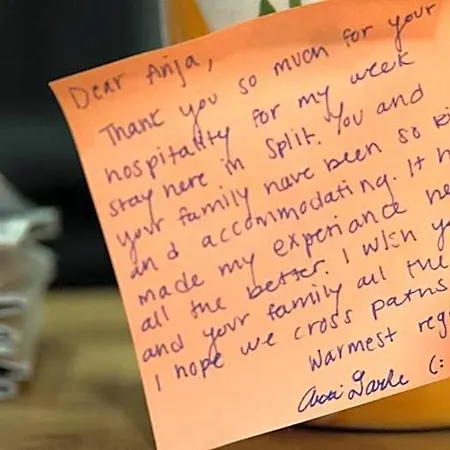 Dear Anja,
Thank you so much for your
hospitality for my week
stay here in Split. You and
your family have been so ki
and accommodating. It h
made my experiance he
all the better. I wish y
and your family all the
I hope we cross paths
Warmest reg
(: